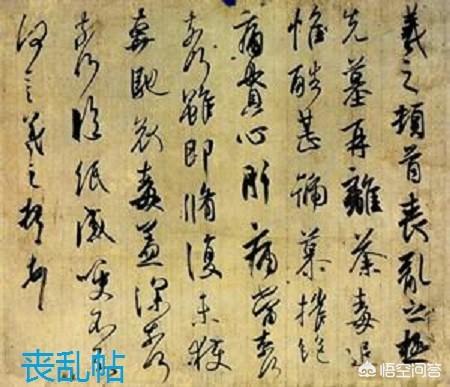 羲之頓首喪亂之極
先墓再離荼毒追
惟酷甚號慕摧絶
痛貫心肝痛當奈何
奈何雖即脩復未獲
奔馳哀毒益深奈何
奈何臨紙感哽不知
何言羲之頓首頓首
丧乱帖
悟空问答